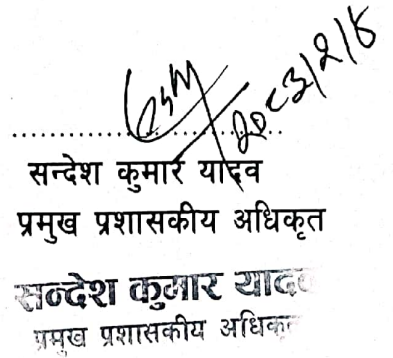 २०८३/२/८
..............................
सन्देश कुमार यादव
प्रमुख प्रशासकीय अधिकृत
सन्देश कुमार यादव
प्रमुख प्रशासकीय अधिकृत